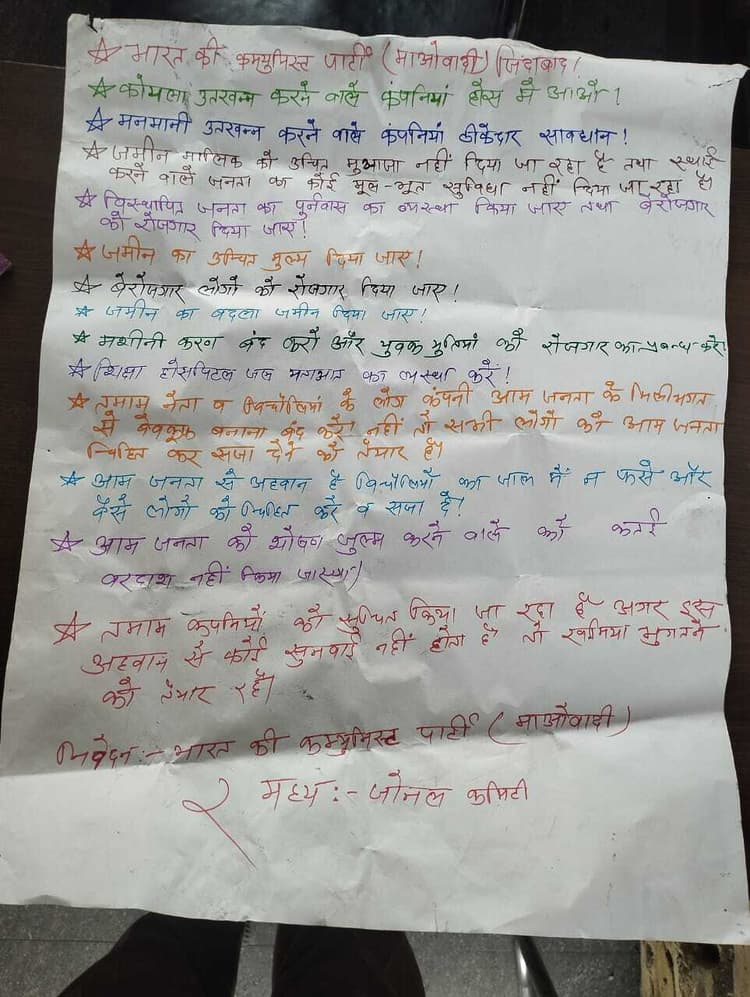 ☆ भारत की कम्युनिस्ट पार्टी (माओवादी) जिंदाबाद!
☆ कोयला उत्खनन करने वाले कंपनियां होस में आओ!
☆ मनमानी उत्खनन करने वाले कंपनियां ठीकेदार सावधान!
☆ जमीन मालिक को उचित मुआजा नहीं दिया जा रहा है तथा स्थाई
करने वाले जनता का कोई मूल-भूत सुविधा नहीं दिया जा रहा है।
☆ विस्थापित जनता का पुर्नवास का व्यस्था किया जाए तथा बेरोजगार
को रोजगार दिया जाए!
☆ जमीन का उचित मुल्य दिया जाए!
☆ बेरोजगार लोगो को रोजगार दिया जाए!
☆ जमीन का बदला जमीन दिया जाए!
☆ मशीनी करण बंद करो और युवक युतियां को रोजगार का प्रबन्ध करे!
☆ शिक्षा होसपिटल जल का व्यस्था करें!
☆ तमाम नेता व बिचौलियां के लोग कंपनी आम जनता के मिलीभगत
से बेवकूफ बनाना बंद करें। नहीं तो सभी लोगो को आम जनता
चिन्हित कर सजा देने को तैयार है।
☆ आम जनता से अहवान है बिचौलियों का जाल में न फसे और
वैसे लोगो को चिन्हित करे व सजा दें?
☆ आम जनता को शोषण जुल्म करने वाले को कतई
वरदाश नहीं किया जाएगा।
☆ तमाम कंपनियों को सुचित किया जा रहा है अगर इस
अहवान से कोई सुनवाई नहीं होता है तो खमिया भुगतने
को तैयार रहें।
निवेदन:- भारत की कम्युनिस्ट पार्टी (माओवादी)
मध्य:- जोनल कमिटी